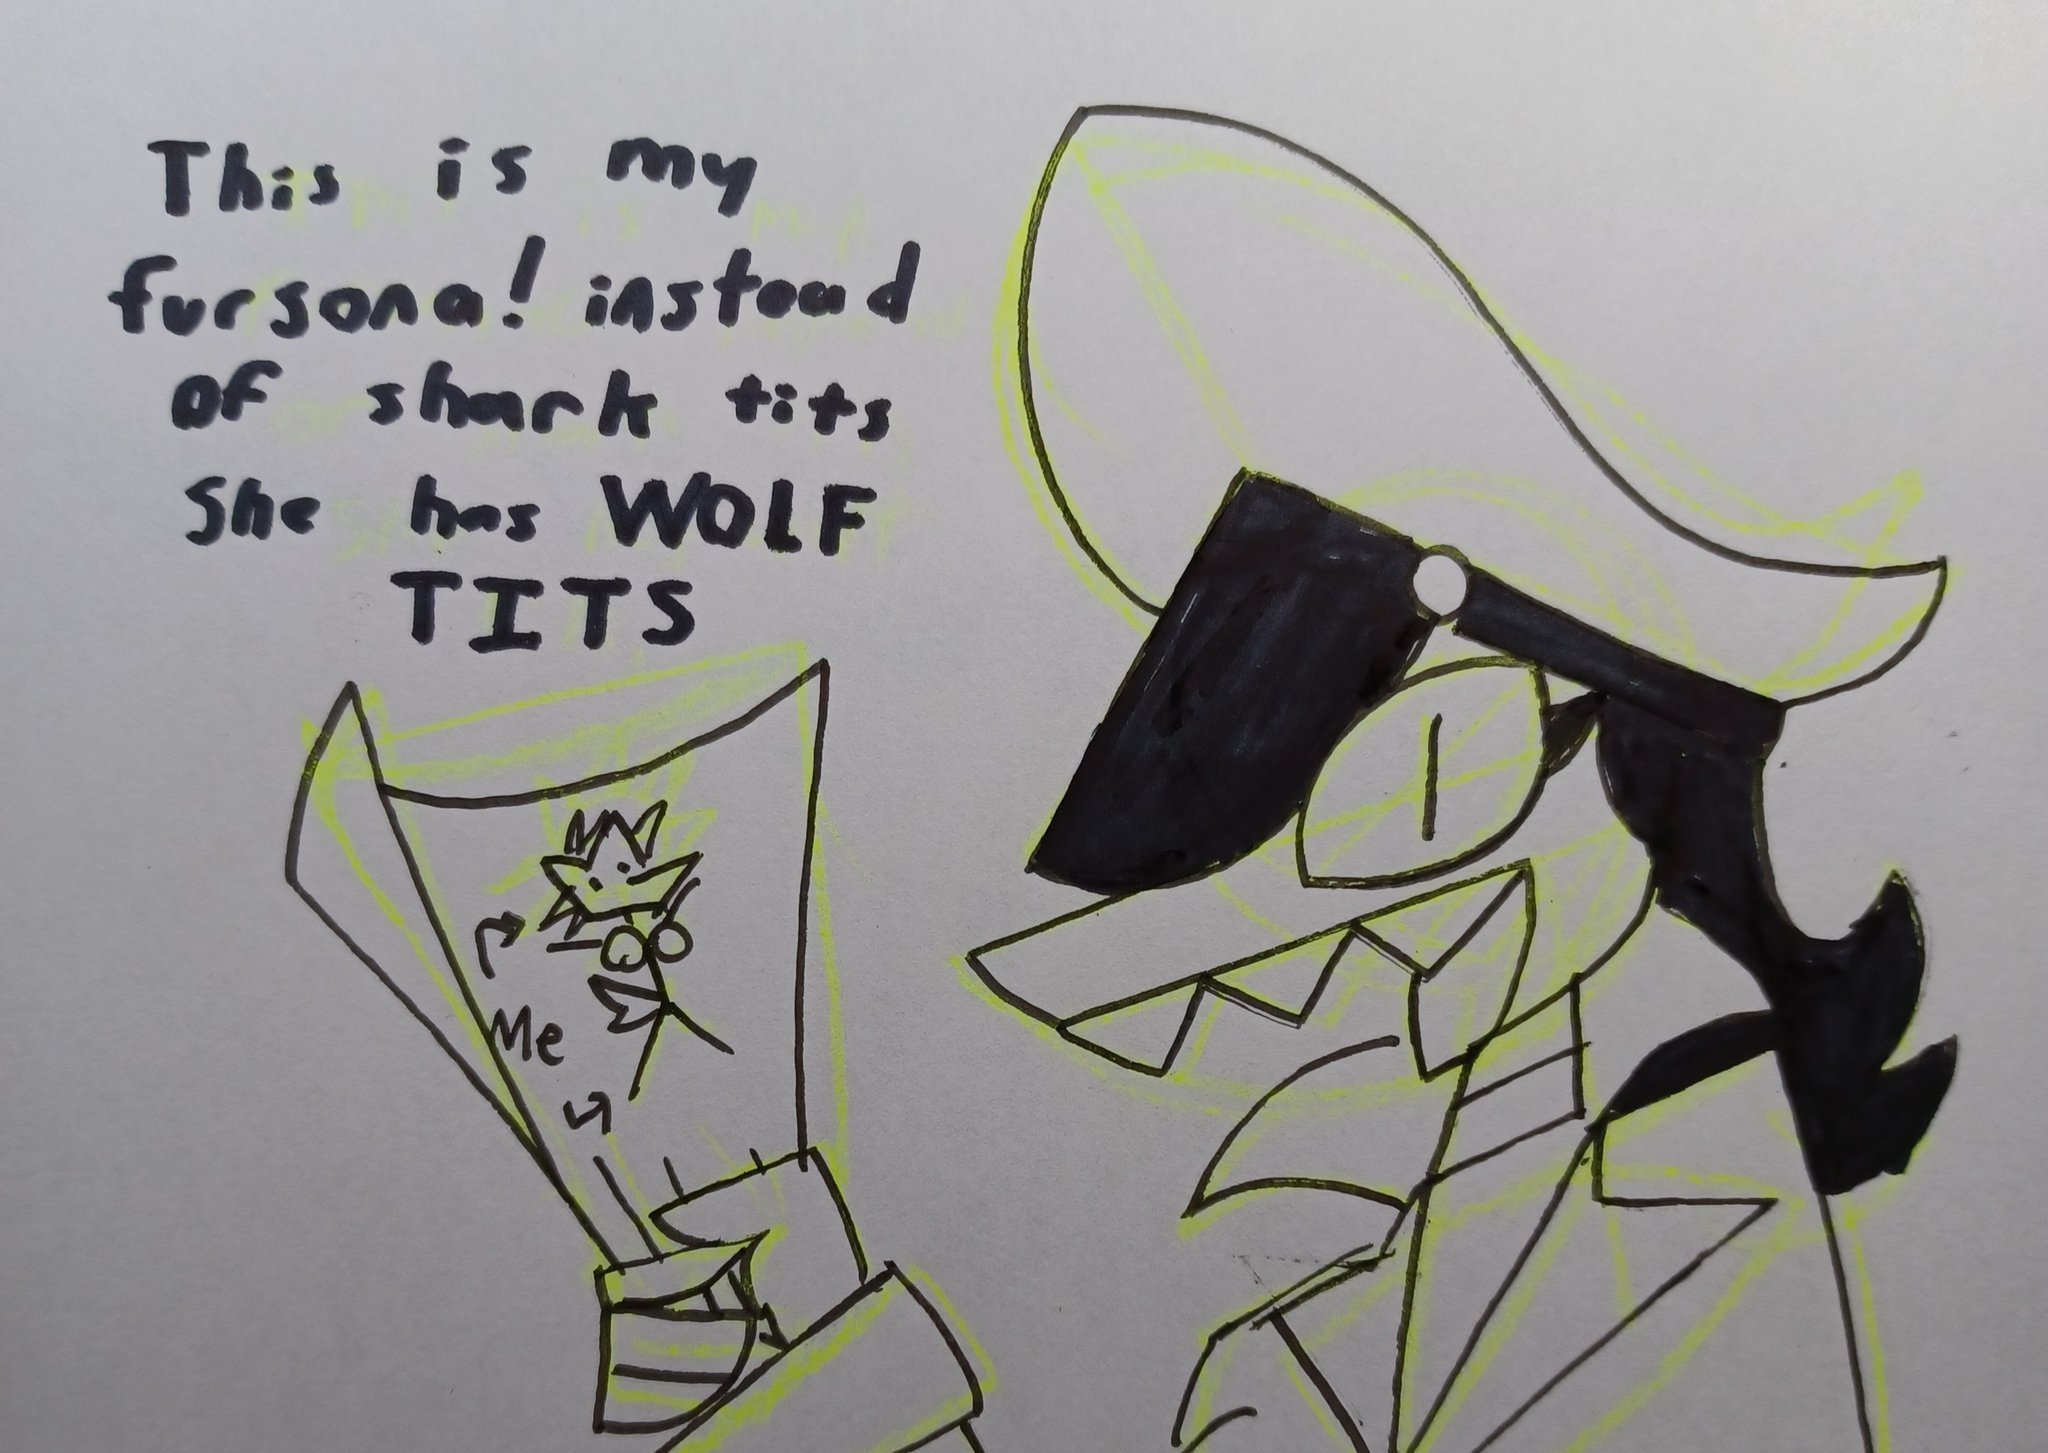 This is my
fursona! instead
of shark tits
She has WOLF
TITS
Me